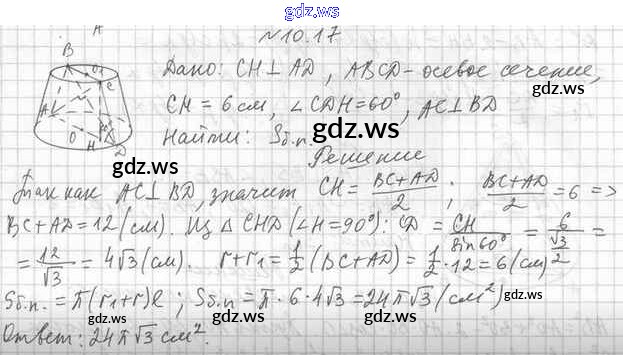 gdz.ws
№10.17
Дано: CH⊥AD, ABCD-осевое сечение,
CH = 6 см, ∠CDH=60°, AC⊥BD
gdz.ws
Найти: Sб.п.
gdz.ws
Решение
Так как AC⊥BD, значит CH = (BC+AD)/2 ; (BC+AD)/2 = 6 =>
gdz.ws
BC+AD=12 (см). Из △CHD (∠H=90°): CD = CH/sin60° = 6/(√3/2) =
= 12/√3 = 4√3 (см). r+r₁ = 1/2 (BC+AD) = 1/2 · 12 = 6 (см)
Sб.п. = π(r₁+r)l ; Sб.п = π · 6 · 4√3 = 24π√3 (см²)
gdz.ws
gdz.ws
Ответ: 24π√3 см².
B
O1
C
A
O
H
60°
D
A